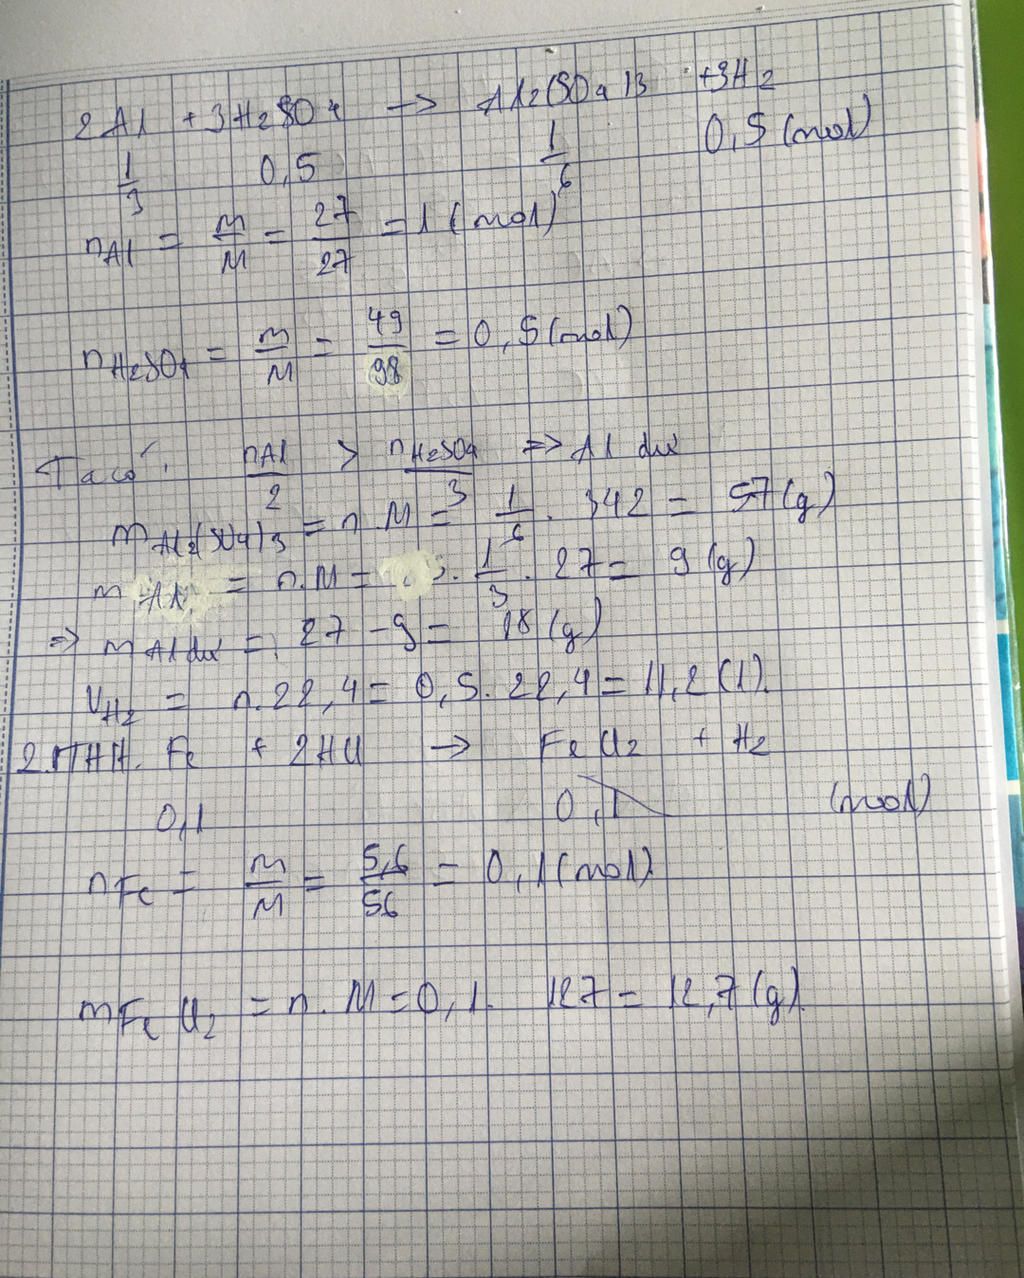 2Al + 3H2SO4 -> Al2(SO4)3 + 3H2
1/3 0,5 1/6 0,5 (mol)
nAl = m/M = 27/27 = 1 (mol)
nH2SO4 = m/M = 49/98 = 0,5 (mol)
Ta có: nAl/2 > nH2SO4/3 => Al dư
mAl2(SO4)3 = n.M = 1/6 . 342 = 57 (g)
mAl = n.M = 1/3 . 27 = 9 (g)
=> mAl dư = 27 - 9 = 18 (g)
VH2 = n.22,4 = 0,5. 22,4 = 11,2 (l).
2.PTHH. Fe + 2HCl -> FeCl2 + H2
0,1 0,1 (mol)
nFe = m/M = 5,6/56 = 0,1 (mol)
mFeCl2 = n.M = 0,1. 127 = 12,7 (g).